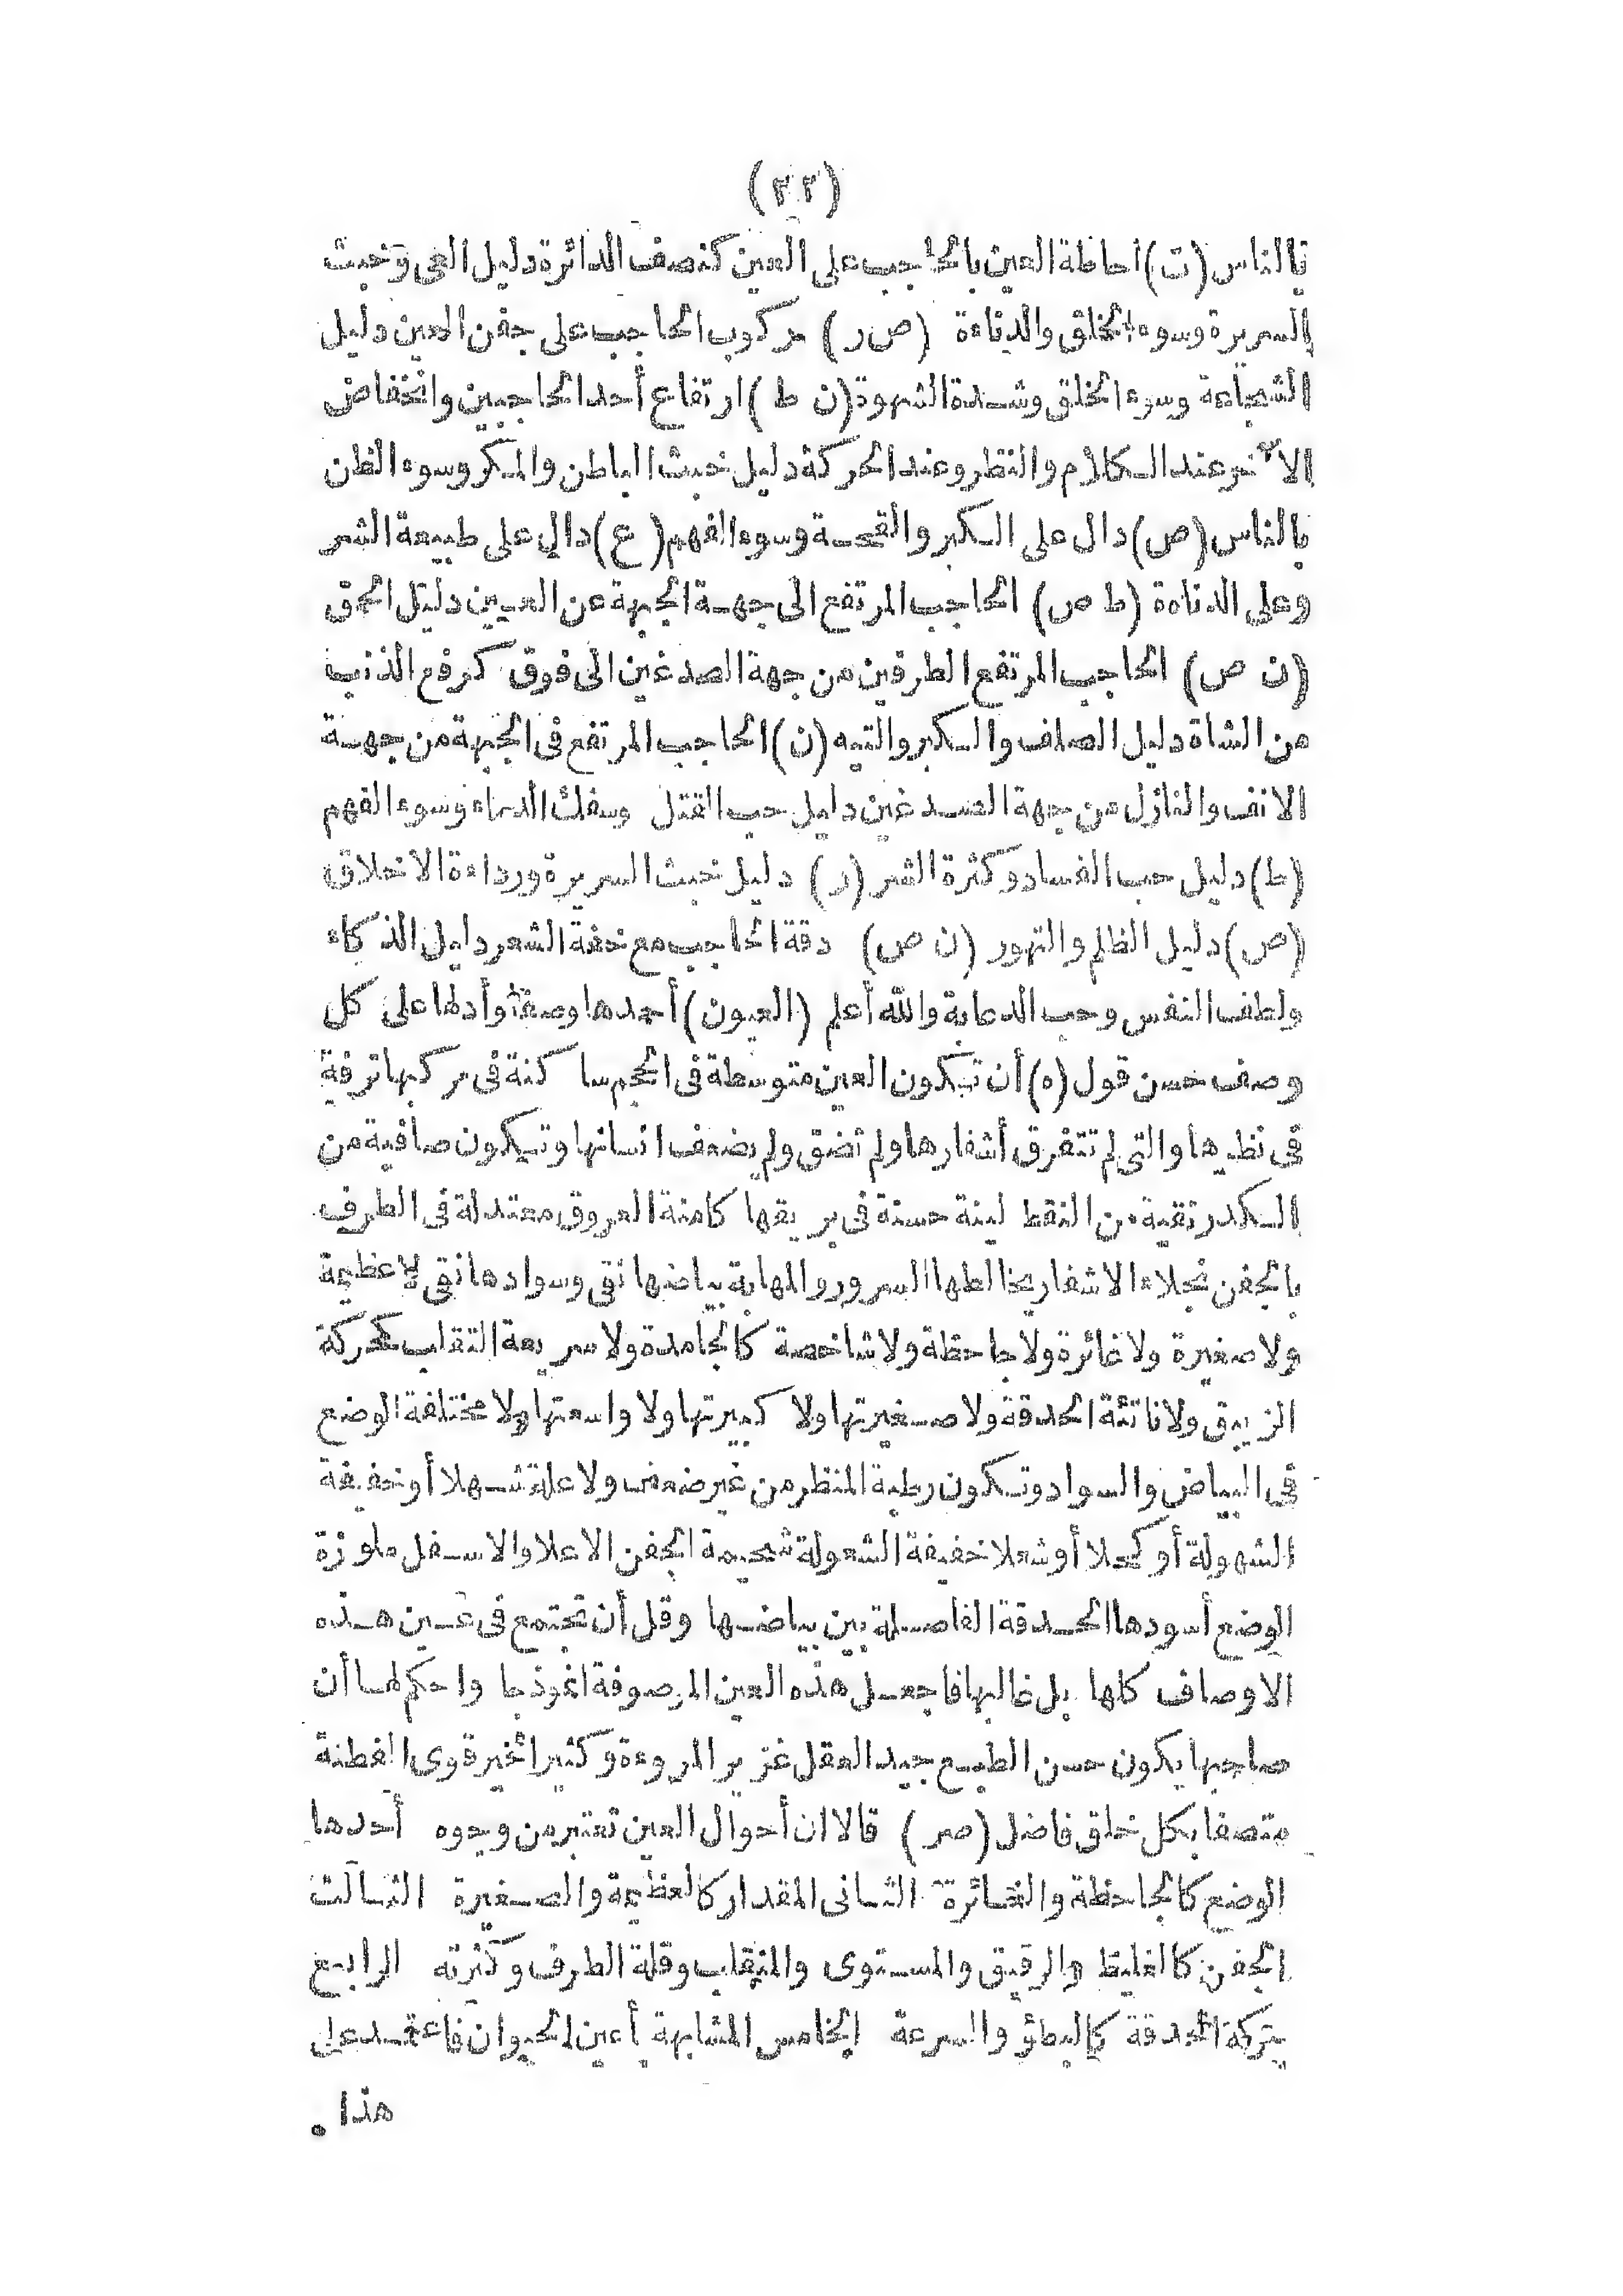 (٢٢)
بالناس (ت) احاطة العين بالحاجب على العين كنصف الدائرة دليل العى وخبث
السريرة وسوء الخلق والدناءة (ص ر) مركوب الحاجب على جفن العين دليل
الشجاعة وسوء الخلق وشدة الشهوة (ن ط) ارتفاع أحد الحاجبين وانخفاض
الآخر عند الكلام والنظر وعند الحركة دليل خبث الباطن والمكر وسوء الظن
بالناس (ص) دال على الكبر والقحة وسوء الفهم (ع) دال على طبيعة الشر
وعلى الدناءة (ط ص) الحاجب المرتفع الى جهة الجبهة عن العينين دليل الحمق
(ن ص) الحاجب المرتفع الطرفين من جهة الصدغين الى فوق كرفع الذنب
من الشاة دليل الصلف والكبر والتيه (ن) الحاجب المرتفع فى الجبهة من جهة
الانف والنازل من جهة الصدغين دليل حب القتل وسفك الدماء وسوء الفهم
(ط) دليل حب الفساد وكثرة الشر (ر) دليل خبث السريرة ورداءة الاخلاق
(ص) دليل الظلم والتهور (ن ص) دقة الحاجب مع خفة الشعر دليل الذكاء
ولطف النفس وحب الدعابة والله أعلم (العيون) أحمدها وصفا وأدلها على كل
وصف حسن قول (ه) أن تكون العين متوسطة فى الحجم ساكنة فى مركبها ترفة
فى نظرها والتى لم تتفرق أشفارها ولم تضق ولم يضعف انسانها وتكون صافية من
الكدر نقية من النقط لينة حسنة فى بريقها كامنة العروق معتدلة فى الطرف
بالجفن نجلاء الاشفار يخالطها السرور والمهابة بياضها نقى وسوادها نقى لا عظيمة
ولا صغيرة ولا غائرة ولا جاحظة ولا شاخصة كالجامدة ولا سريعة التقلب كحركة
الزيبق ولا ناتئة الحدقة ولا صغيرتها ولا كبيرتها ولا واسعتها ولا مختلفة الوضع
فى البياض والسواد وتكون رطبة المنظر من غير ضعف ولا علة شهلا أو خفيفة
الشهولة أو كحلا أو شعلا خفيفة الشعولة شحيمة الجفن الاعلا والاسفل ملوزة
الوضع أسودها الحدقة الفاصلة بين بياضها وقل أن تجتمع فى عين هذه
الاوصاف كلها بل غالبها فاجعل هذه العين الموصوفة انموذجا واحكم لها أن
صاحبها يكون حسن الطبع جيد العقل غزير المروءة وكثير الخير قوى الفطنة
متصفا بكل خلق فاضل (صر) قالا ان أحوال العين تعتبر من وجوه أحدها
الوضع كالجاحظة والغائرة الثانى المقدار كالعظيمة والصغيرة الثالث
الجفن كالغليظ والرقيق والمستوى والمنقلب وقلة الطرف وكثرته الرابع
حركة الحدقة كالبطؤ والسرعة الخامس المشابهة أعين الحيوان فاعتمد على
هذا